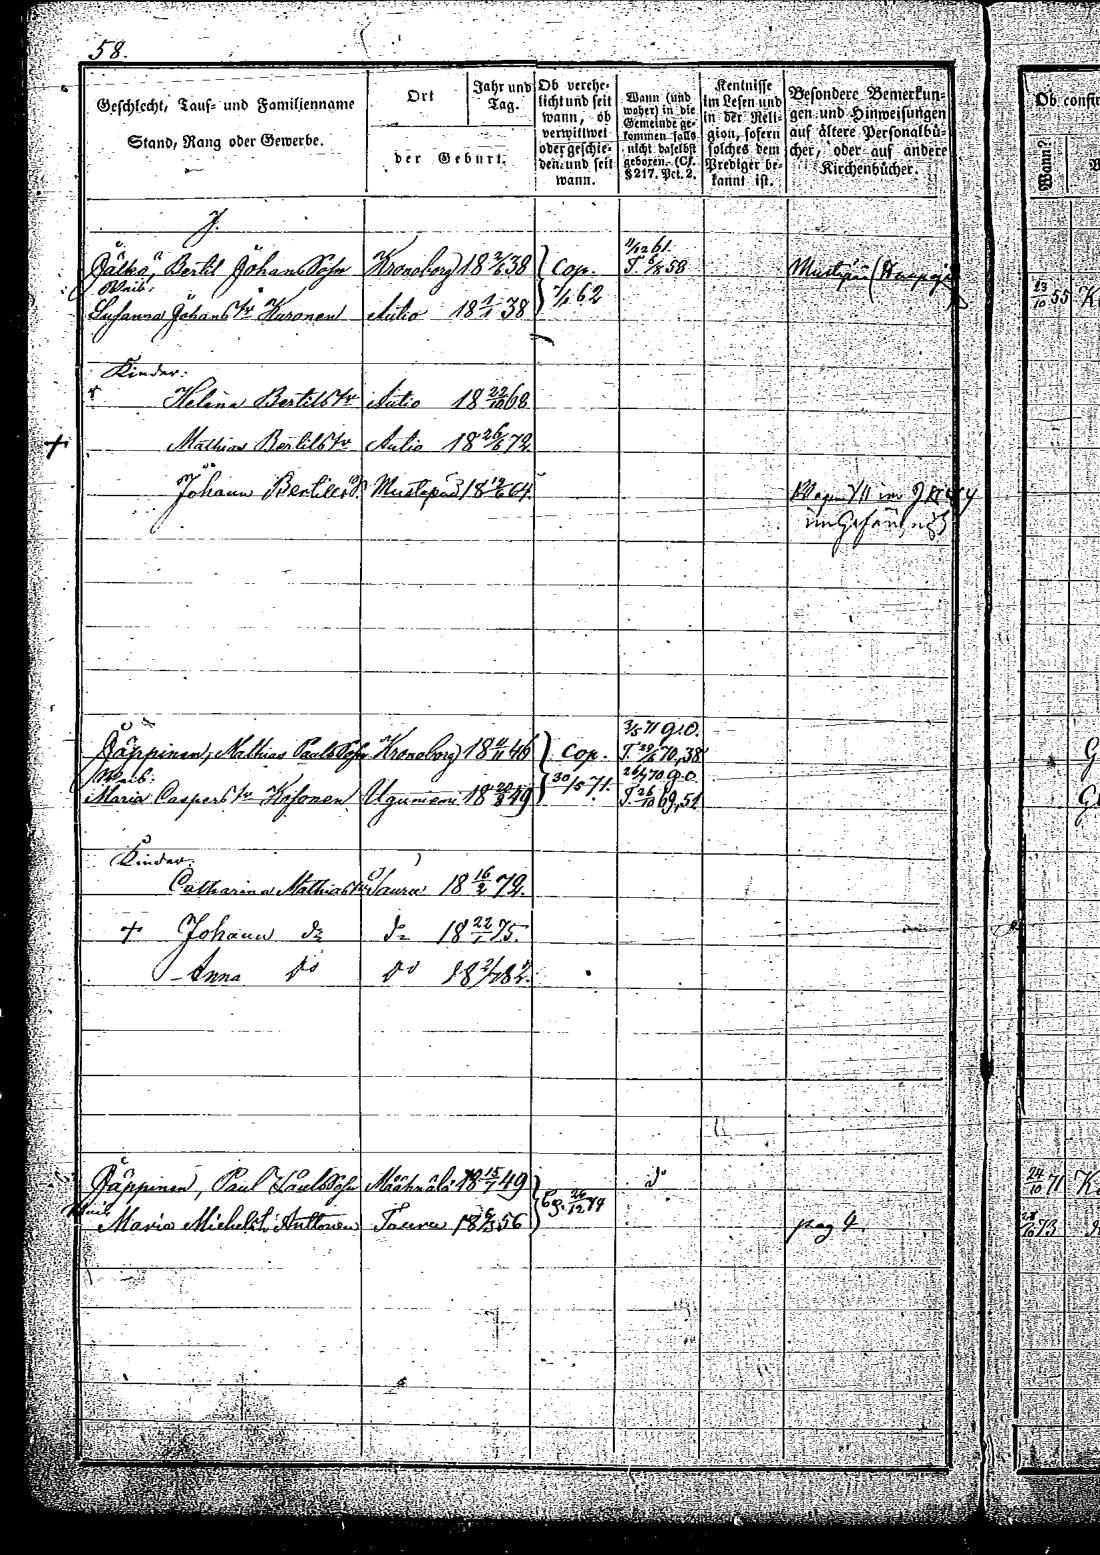 58.
Geschlecht, Tauf- und Familienname
Stand, Rang oder Gewerbe.
Ort
Jahr und Tag.
der Geburt.
Ob verehe-
licht und seit
wann, ob
verwittwet
oder geschie-
den und seit
wann.
Wann (und
woher) in die
Gemeinde ge-
kommen falls
nicht daselbst
geboren. (Cf.
§ 217. Pct. 2.
Kentnisse
im Lesen und
in der Reli-
gion, sofern
solches dem
Prediger be-
kannt ist.
Besondere Bemerkun-
gen und Hinweisungen
auf ältere Personalbü-
cher, oder auf andere
Kirchenbücher.
Ob confir
Wann?
J.
Jälkö, Bertil Johans Sohn Kronoborg 18 2/6 38 cop. 11/12 61. T. 6/8 58
Weib:
Susanna Johans tr Karonen Autio 18 1/1 38 7/1 62
13/10 55
Kinder:
Helena Bertils tr Autio 18 22/10 68
+ Mathias Bertils tr Autio 18 26/6 72.
Johann Bertils S. Mustapää 18 12/6 64.
im Gefängniß
Jäppinen, Mathias Pauls Sohn Kronoborg 18 4/11 46 cop. 3/5 71 g.o. T. 30/6 70, 38
Weib:
Maria Caspers tr Kosonen Ugumemi 18 20/3 49 30/5 71. 26/1 70 g.o. T. 26/10 69, 51
Kinder:
Catharina Mathias tr Tauru 18 16/2 72.
+ Johann do do 18 22/1 75.
Anna do do 18 2/1 82.
Jäppinen, Paul Pauls Sohn Määhnälä 18 15/7 49
24/10 71
Weib
Maria Michels t. Anttonen Tauru 18 6/3 56 cop. 26/12 74 pag 4
28/10 73